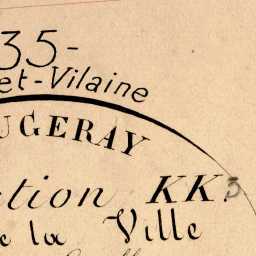 35-
et-Vilaine
UGERAY
ction KK.3
e la Ville